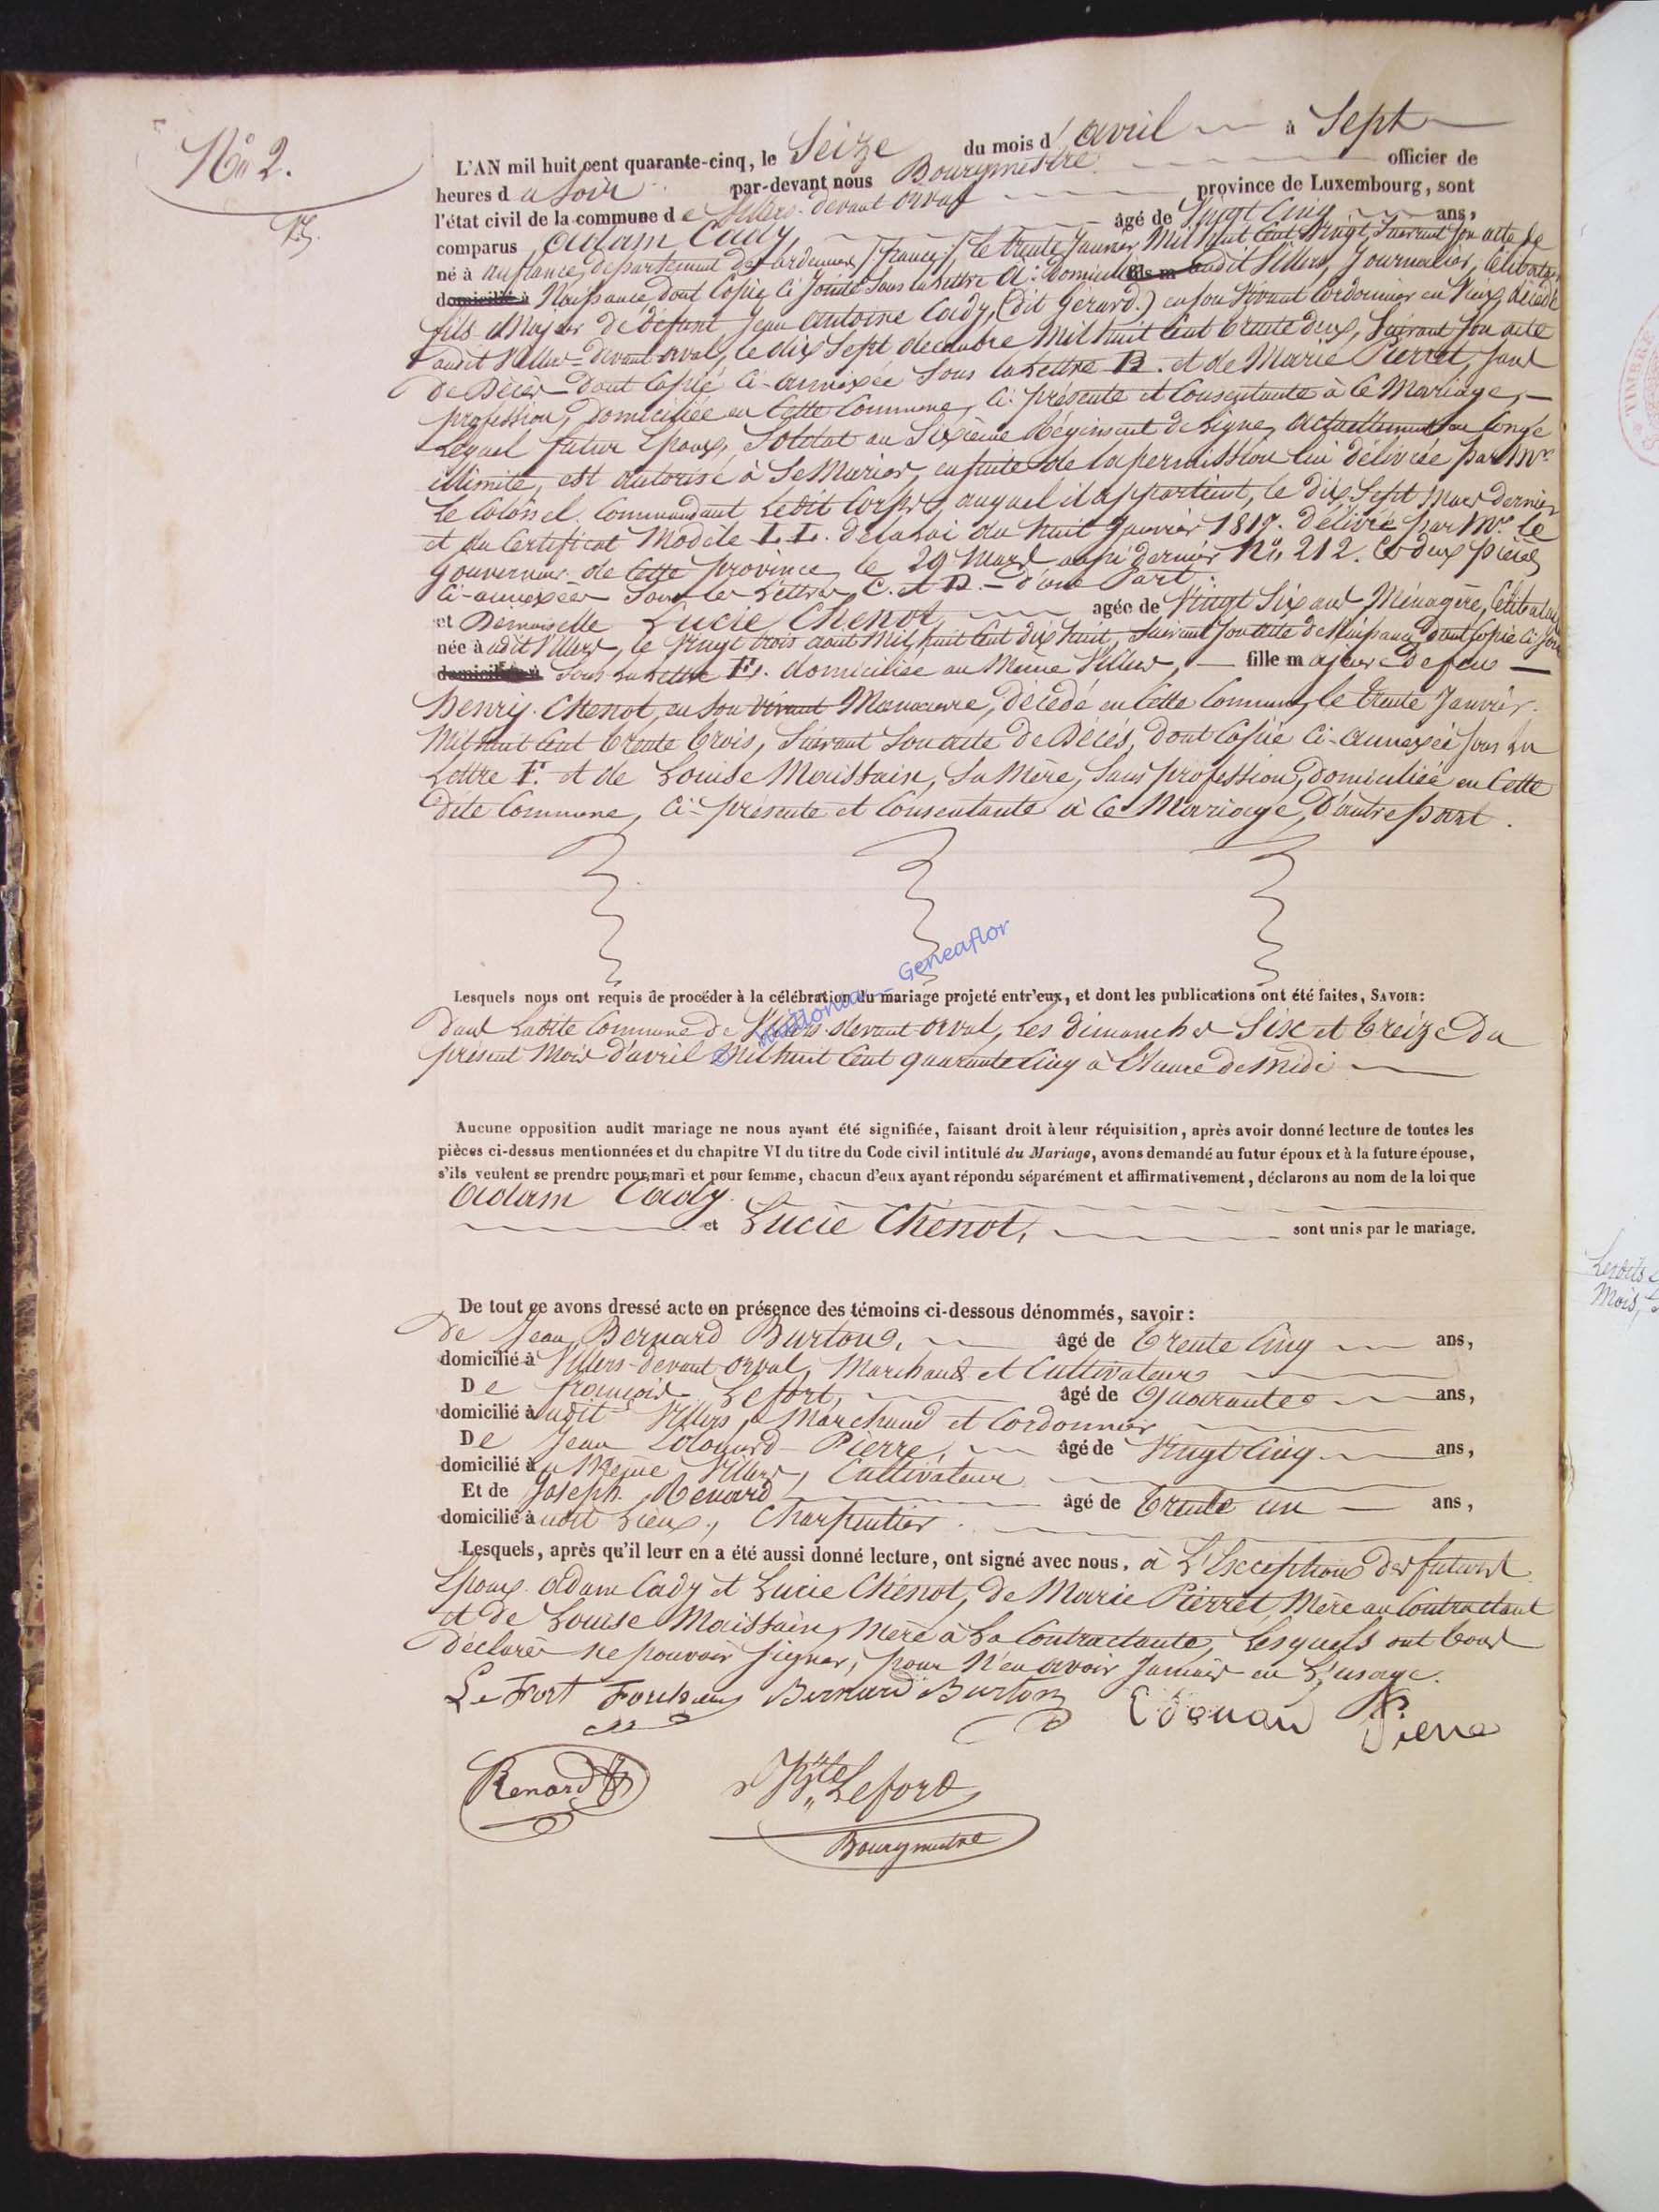 No 2.
L'AN mil huit cent quarante-cinq, le Seize du mois d'avril à Sept
heures du Soir par-devant nous Bourgmestre officier de
l'état civil de la commune de Villers-devant orval province de Luxembourg, sont
comparus adam Cady, âgé de Vingt Cinq ans,
né à département des ardennes (france), le trente Janvier Mil huit Cent Vingt, Suivant Son acte de
domicilié à Naissance, dont Copie Ci Jointe Sous la lettre A. domicilié fils m audit Villers, Journalier, Célibataire
fils Majeur de défunt Jean Antoine Cady, (dit Gérard.) en son Vivant Cordonnier en Vieux, décédé
audit Villers-devant orval, le dix Sept décembre Mil huit Cent trente deux, Suivant Son acte
de Décès dont Copie Ci-annexée Sous la Lettre B. et de Marie Pierret, sans
profession, domiciliée en Cette Commune, Ci-présente et Consentante à Ce Mariage,
Lequel futur Epoux, Soldat au Sixième Régiment de Ligne, actuellement en Congé
illimité, est autorisé à Se Marier, ensuite de la permission lui délivrée par Mr.
Le Colonel Commandant Ledit Corps, auquel il appartient, le dix Sept Mars dernier
et du Certificat Modèle L.L. de la Loi du huit Janvier 1817. délivré par Mr. le
Gouverneur de Cette province, le 29 Mars aussi dernier No. 212. Ces deux pièces
Ci-annexées Sous les Lettres C. et D. - d'une Part.
et Demoiselle Lucie Chenot, agée de Vingt Six ans, Ménagère, Célibataire
née à udit Villers, le Vingt trois aout Mil huit Cent dix huit, Suivant Son acte de Naissance dont Copie Ci Jointe
domiciliée à Sous la Lettre E. domiciliée au Même Villers, fille majeure de feu
Henry Chenot, en Son Vivant Manoeuvre, décédé en Cette Commune, le trente Janvier
Mil huit Cent trente trois, Suivant Son acte de Décès, dont Copie Ci-annexée Sous la
Lettre F. et de Louise Maissain, Sa Mère, Sans profession, domiciliée en Cette
dite Commune, Ci-présente et Consentante à Ce Mariage, D'autre part.
© Wallonia - Geneaflor
Lesquels nous ont requis de procéder à la célébration du mariage projeté entr'eux, et dont les publications ont été faites, SAVOIR:
dans Ladite Commune de Villers-devant-orval, Les dimanches Six et treize du
présent Mois d'avril Mil huit Cent quarante Cinq à L'heure de Midi
Aucune opposition audit mariage ne nous ayant été signifiée, faisant droit à leur réquisition, après avoir donné lecture de toutes les
pièces ci-dessus mentionnées et du chapitre VI du titre du Code civil intitulé du Mariage, avons demandé au futur époux et à la future épouse,
s'ils veulent se prendre pour mari et pour femme, chacun d'eux ayant répondu séparément et affirmativement, déclarons au nom de la loi que
adam Cady.
et Lucie Chenot, sont unis par le mariage.
De tout ce avons dressé acte en présence des témoins ci-dessous dénommés, savoir:
De Jean Bernard Burton, âgé de trente Cinq ans,
domicilié à Villers-devant orval, Marchand et Cultivateur
De françois Lefort, âgé de Quarante ans,
domicilié à udit Villers, Marchand et Cordonnier
De Jean Edouard Pierre, âgé de Vingt Cinq ans,
domicilié à u Même Villers, Cultivateur
Et de Joseph Renard âgé de trente un ans,
domicilié à udit Lieux, Charpentier.
Lesquels, après qu'il leur en a été aussi donné lecture, ont signé avec nous. à L'Exception des futurs
Epoux adam Cady et Lucie Chénot, de Marie Pierret, Mère au Contractant
et de Louise Maissain, Mère à La Contractante, Lesquels ont tous
déclaré ne pouvoir Signer, pour N'en avoir Jamais eu L'usage.
Le Fort Bernard Burton Edouard Pierre
Renard Lefort
Bourgmestre
TIMBRE
Mois,